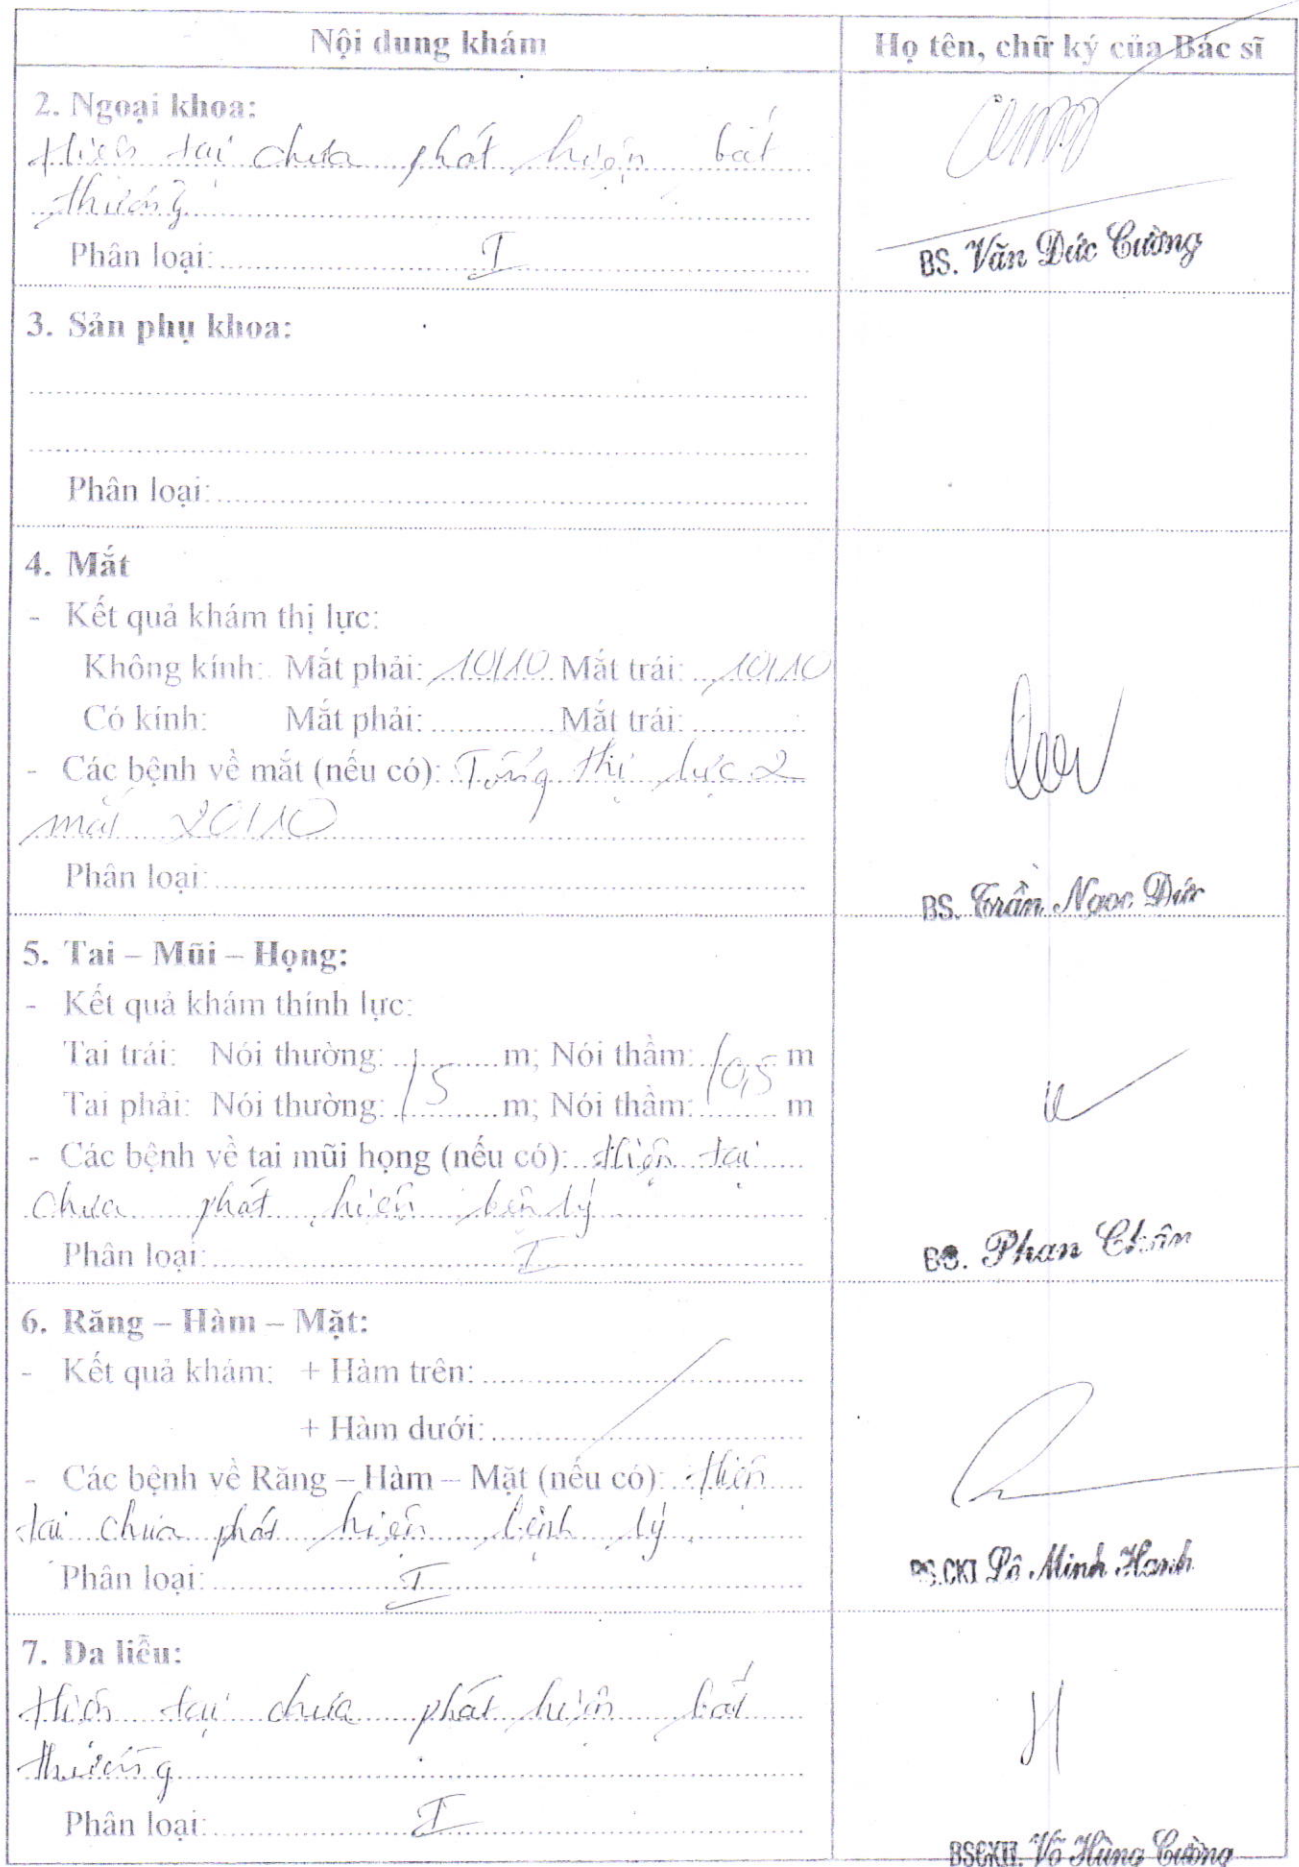 Nội dung khám
Họ tên, chữ ký của Bác sĩ
2. Ngoại khoa:
Hiện tại chưa phát hiện bất
thường
Phân loại: I
BS. Văn Đức Cường
3. Sản phụ khoa:
Phân loại:
4. Mắt
- Kết quả khám thị lực:
Không kính: Mắt phải: 10/10 Mắt trái: 10/10
Có kính: Mắt phải: Mắt trái:
- Các bệnh về mắt (nếu có): Tổng thị lực 2
mắt 20/10
Phân loại:
BS. Trần Ngọc Đức
5. Tai – Mũi – Họng:
- Kết quả khám thính lực:
Tai trái: Nói thường: m; Nói thầm: m
Tai phải: Nói thường: 5 m; Nói thầm: 0,5 m
- Các bệnh về tai mũi họng (nếu có): Hiện tại
chưa phát hiện bện lý
Phân loại: I
BS. Phan Chân
6. Răng – Hàm – Mặt:
- Kết quả khám: + Hàm trên:
+ Hàm dưới:
- Các bệnh về Răng – Hàm – Mặt (nếu có): Hiện
tại chưa phát hiện bệnh lý.
Phân loại: I
BS.CKI Minh
7. Da liễu:
Hiện tại chưa phát hiện bất
thường
Phân loại: I
Võ Hùng Cường